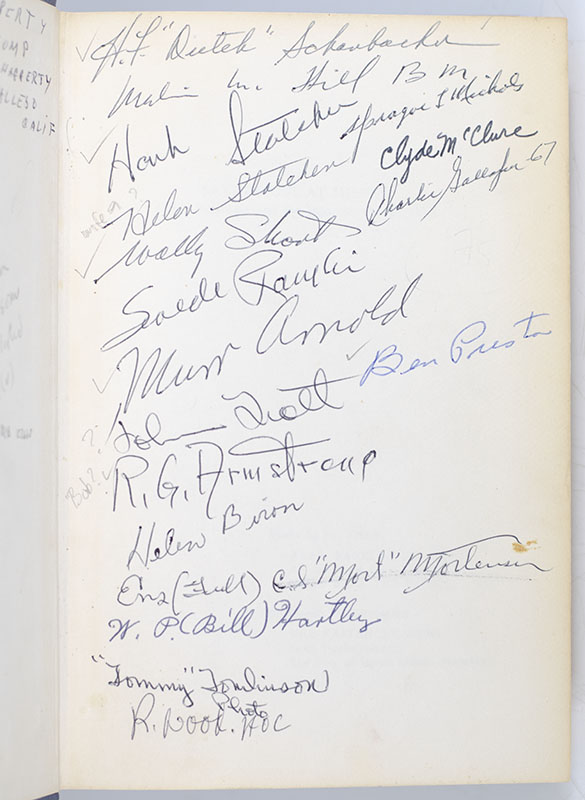 PERTY
COMP
HAGGERTY
VALLEJO
CALIF
H.F. "Dutch" Schonbacher
M. Hill B M
Hank Statchen
Sprague L Nichols
wife of?
Helen Statchen
Clyde McClure
Wally Short
Charlie Gallagher 67
Swede
Murr Arnold
Ben Preston
? John
Bob? R. G. Armstrong
Helen Biron
Ens (Full) C.S "Mort" Mortensen
W. P. (Bill) Hartley
"Tommy" Tomlinson
Photo
R. Wook. HOC